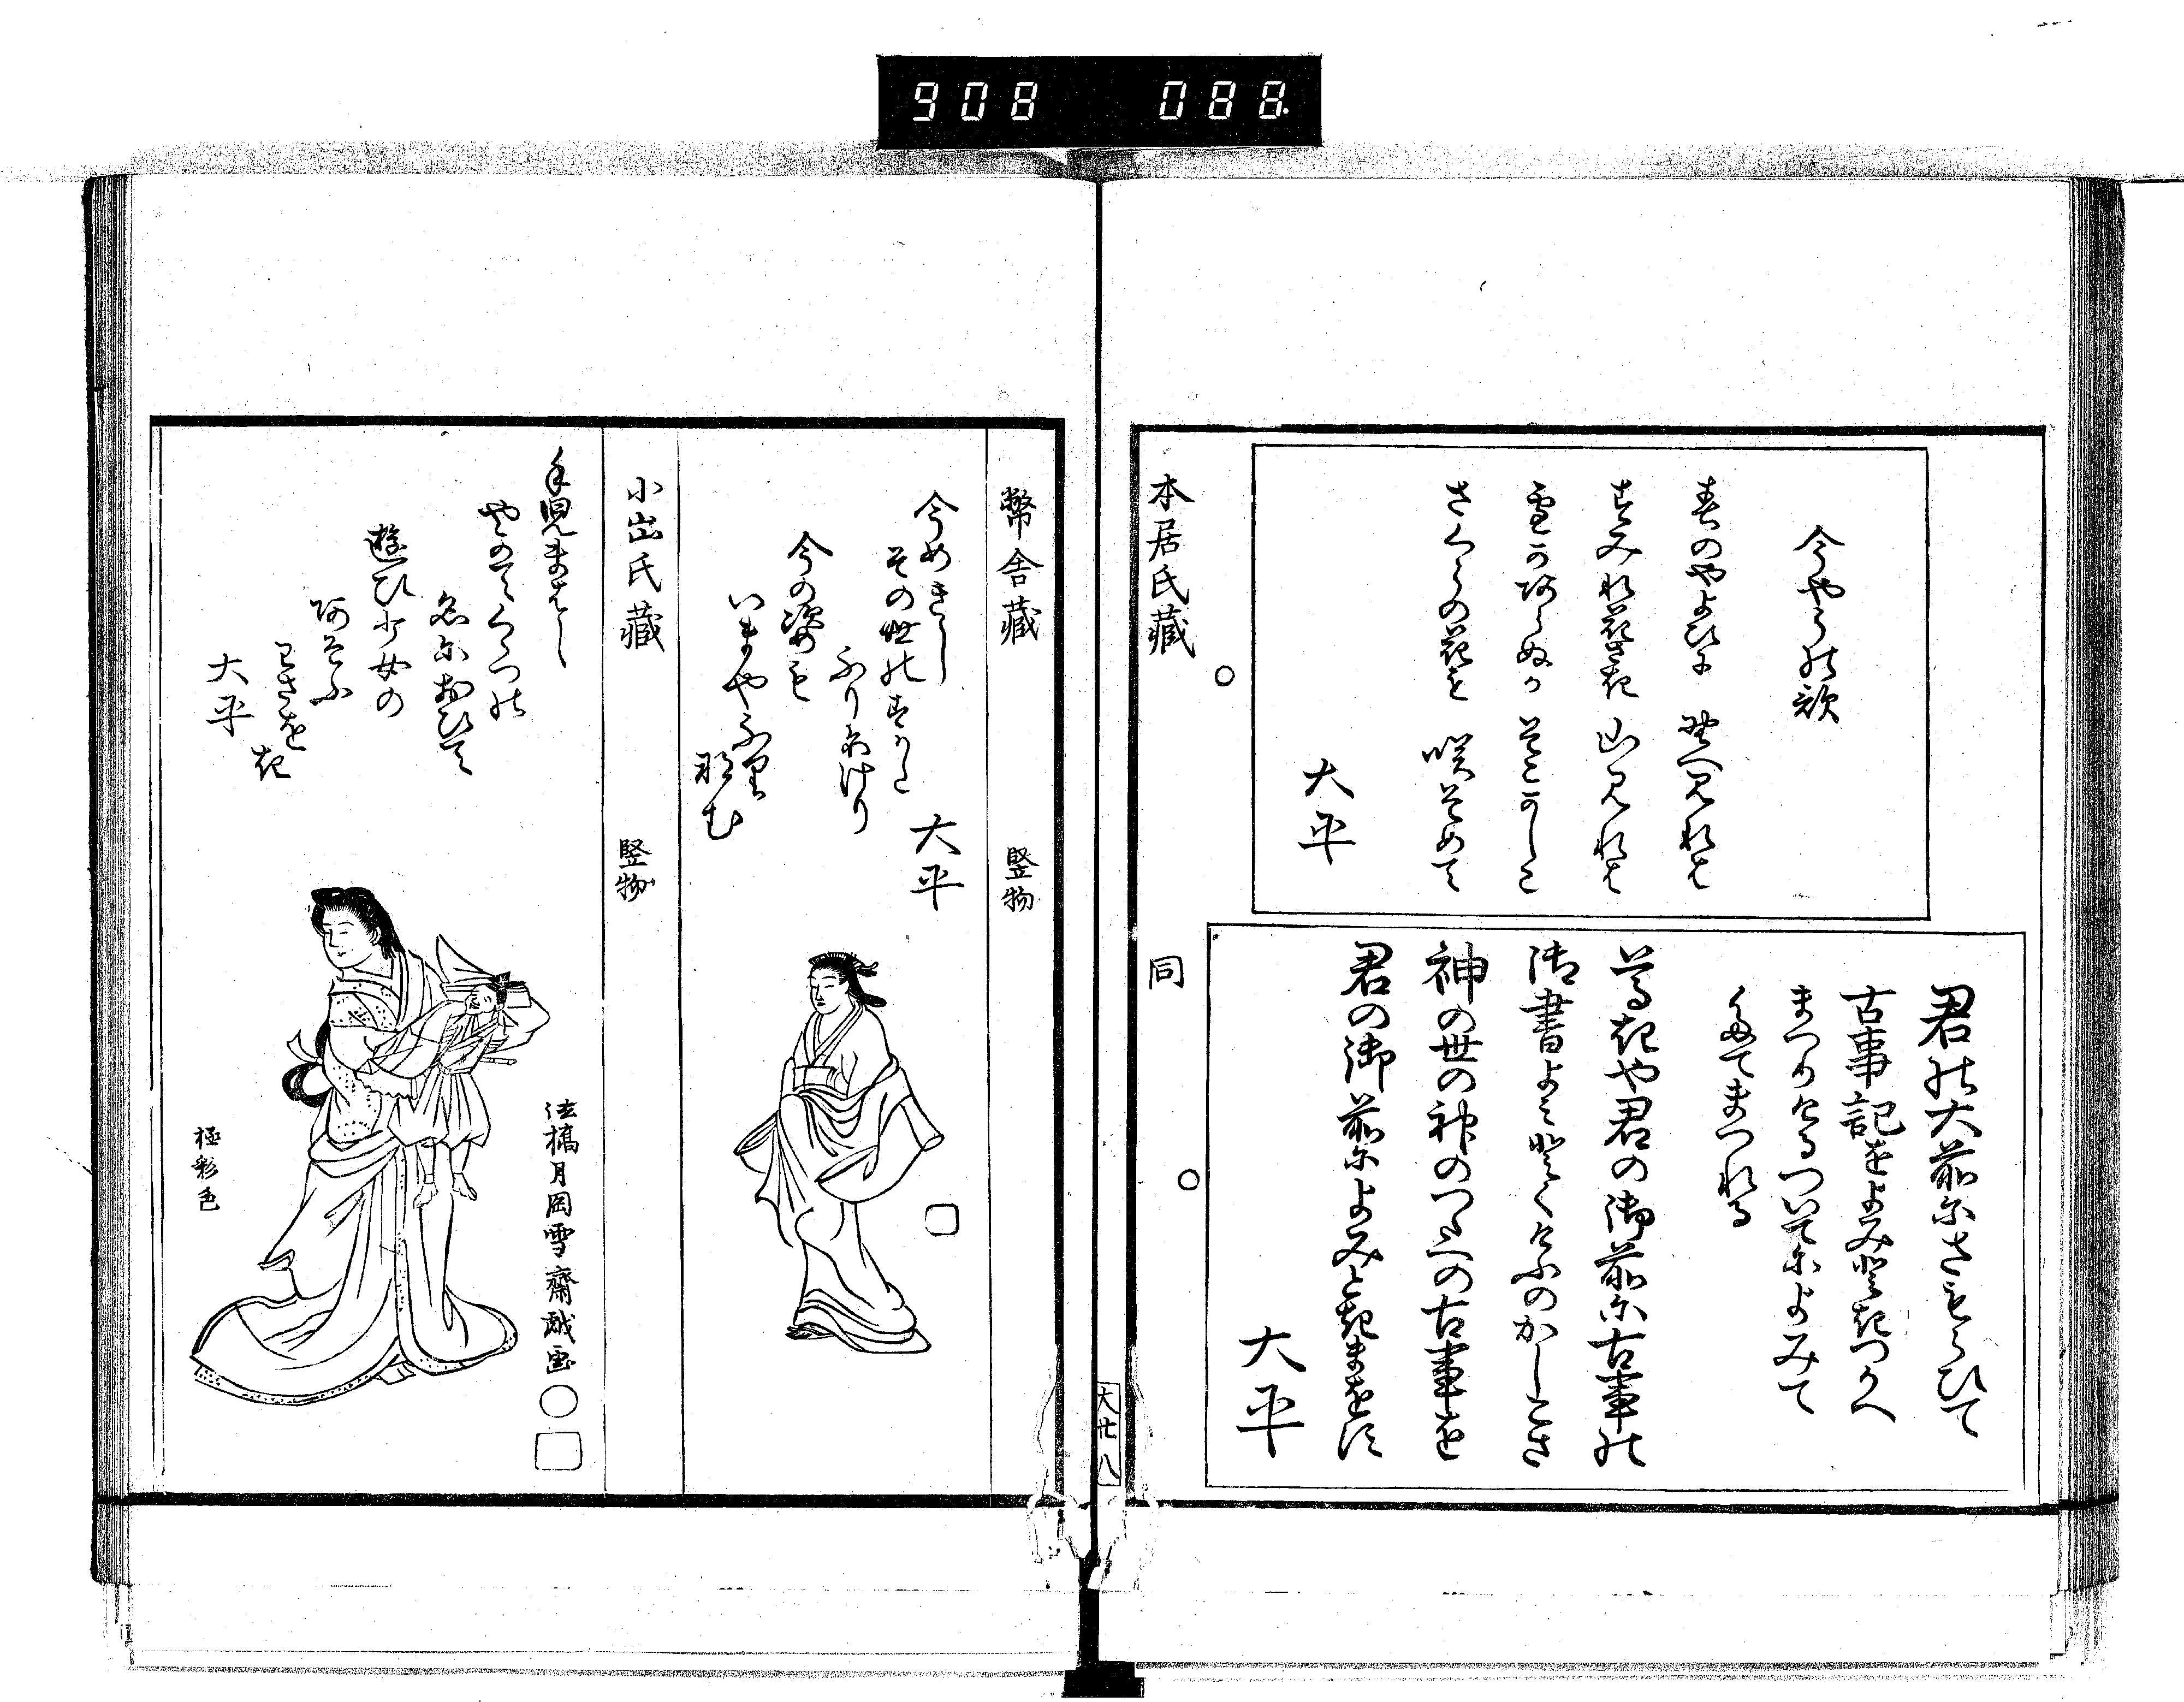 908 088
今やうの歌
春のやよひに 野へ見れは
すみれ花さき 山見れは
雪かあらぬか そこかしこ
さくらの花を 咲そめて
大平
本居氏藏
君の大前にさもらひて
古事記をよみときつかへ
まつりけるついてによみて
たてまつれる
たふときや君の御前に古事の
御書よみときくけふのかしこさ
神の世の神のつたへの古事を
君の御前によみときまをす
大平
同
大廿八
幣舎藏
竪物
今めきし
その世のすかた
ふりにけり
今の姿も
いまやふり
なむ
大平
小出氏藏
竪物
手児ませし
やのてくつの
名におひて
遊ひ少女の
あそふ
わさをき
大平
法橋月岡雪齋戯画
極彩色